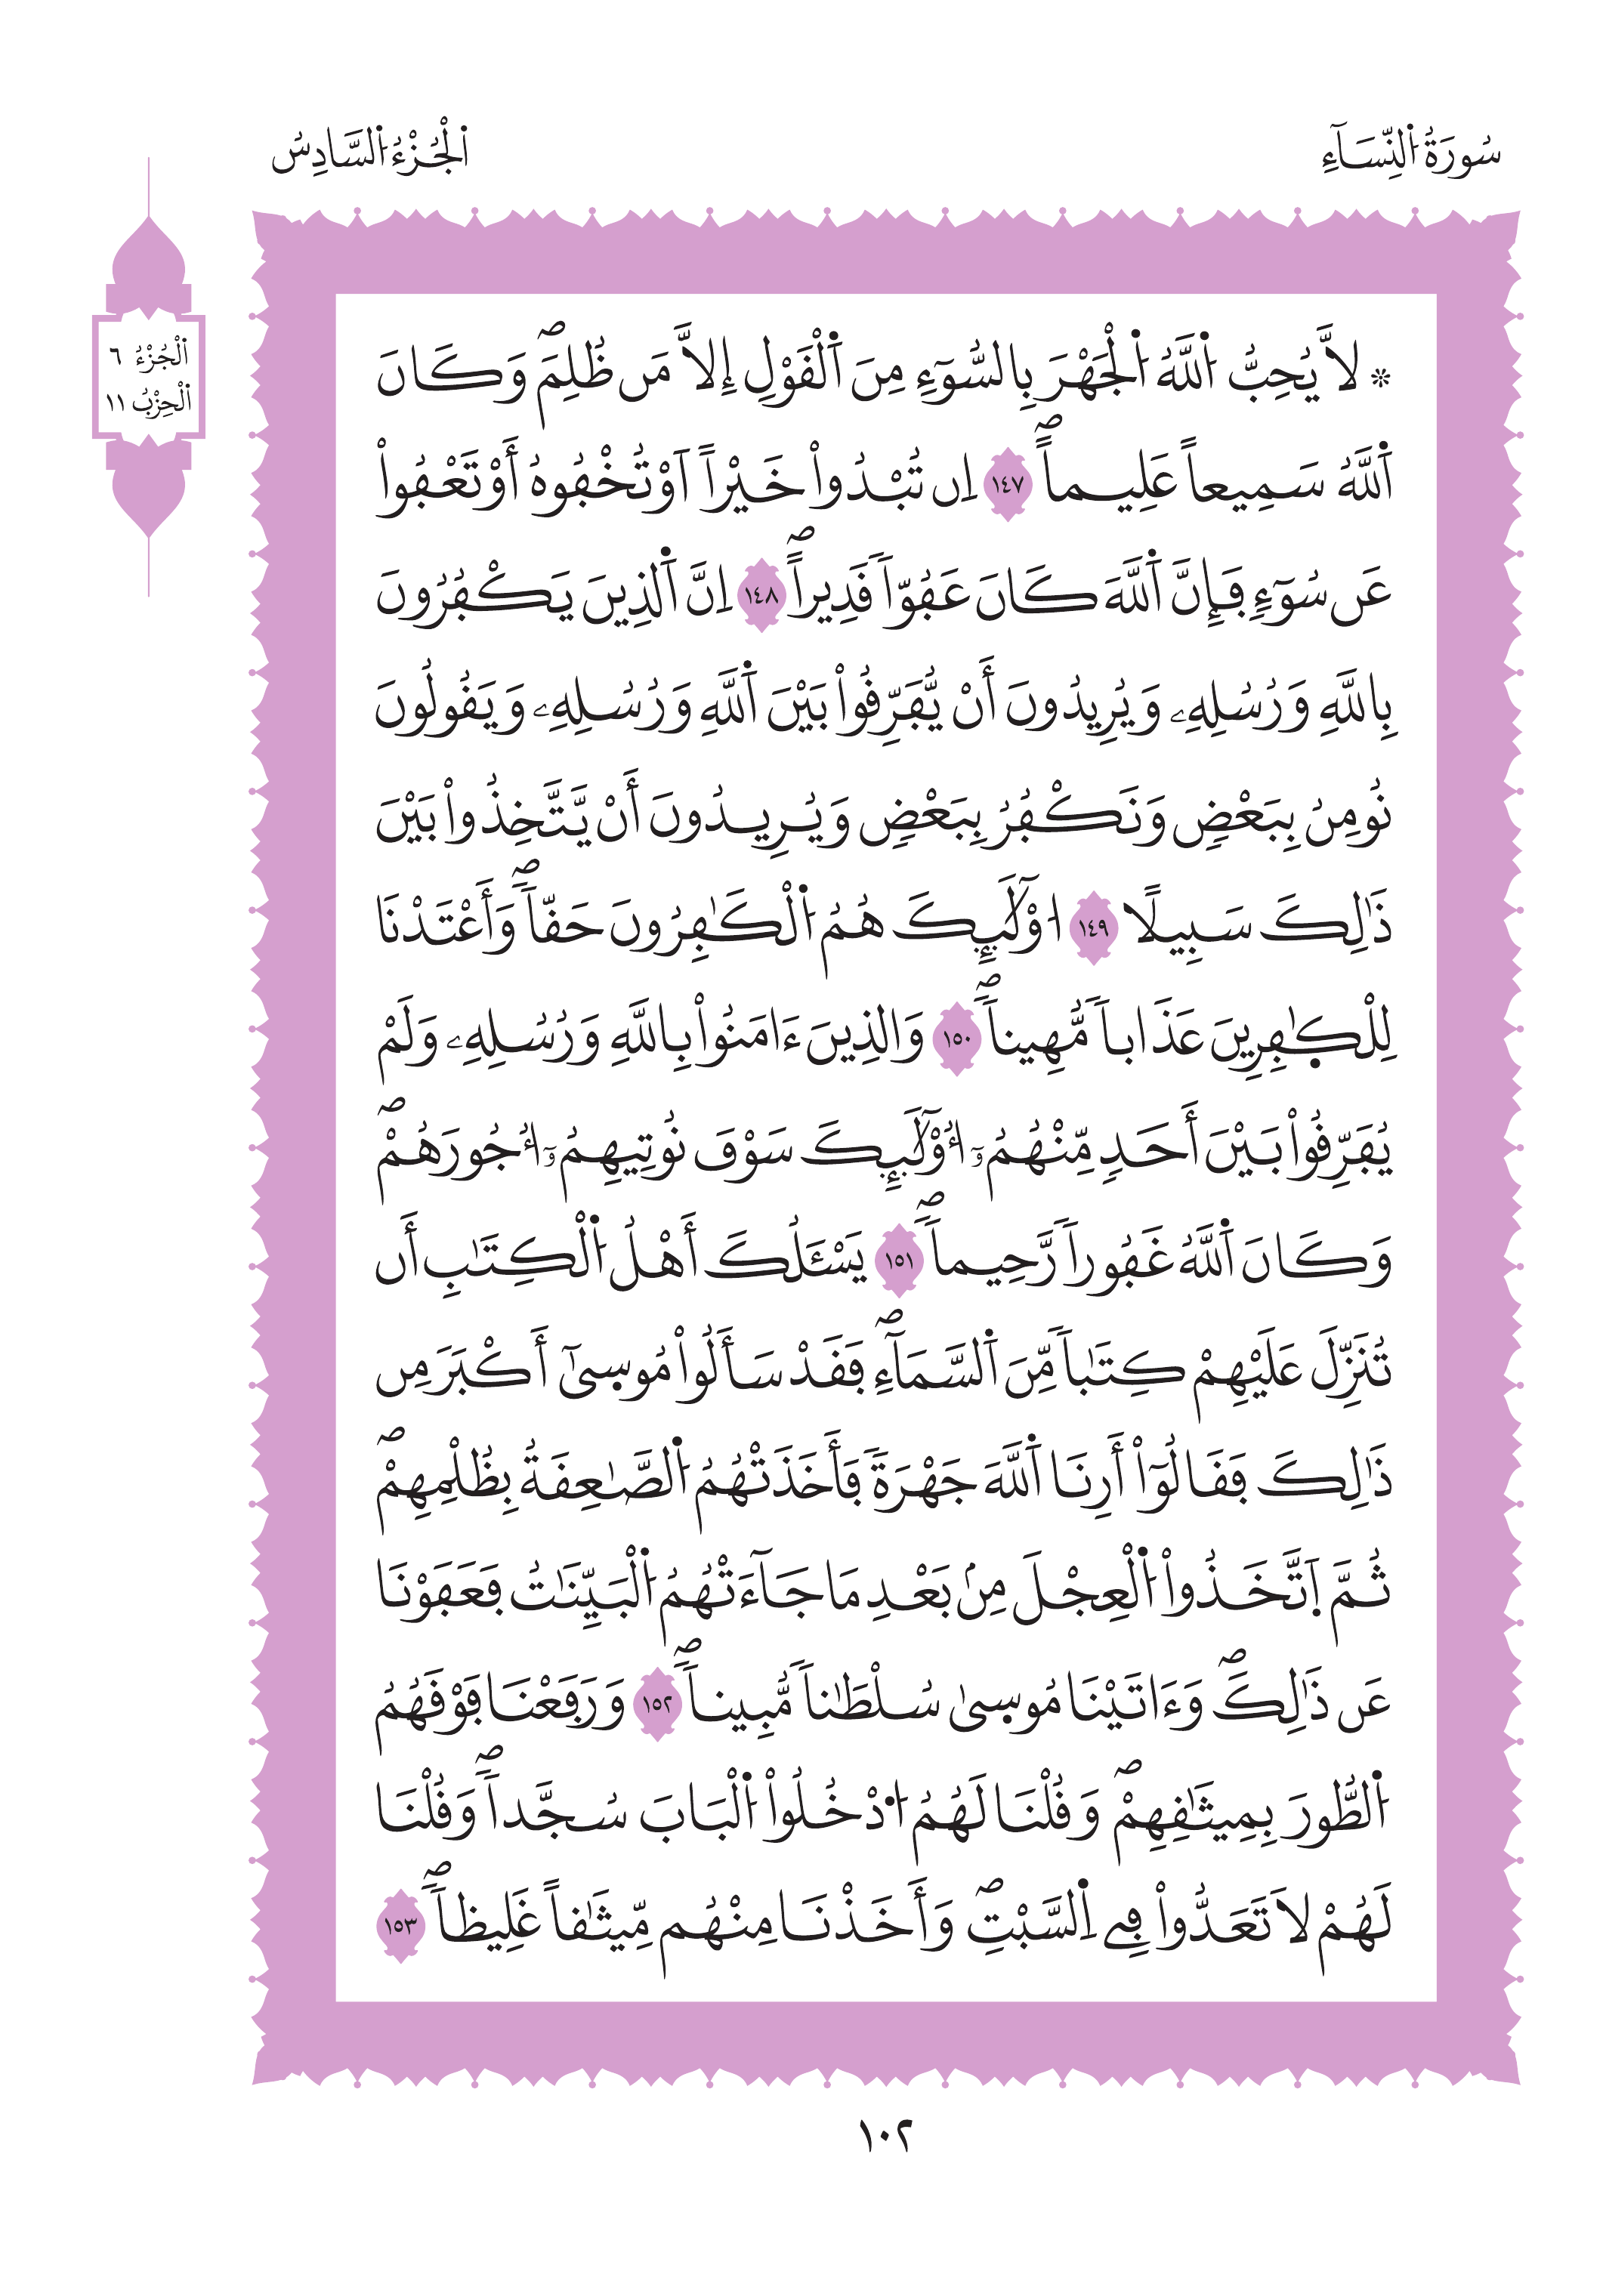 سُورَةُ اُ۬لنِّسَآءِ
اَ۬لْجُزْءُ اُ۬لسَّادِسُ
اَ۬لْجُزْءُ ٦
اَ۬لْحِزْبُ ١١
* لَّا يُحِبُّ اُ۬للَّهُ اُ۬لْجَهْرَ بِالسُّوٓءِ مِنَ اَ۬لْقَوْلِ إِلَّا مَن ظُلِمَۖ وَكَانَ
اَ۬للَّهُ سَمِيعاً عَلِيماًۖ ١٤٧ اِن تُبْدُواْ خَيْراً اَوْ تُخْفُوهُ أَوْ تَعْفُواْ
عَن سُوٓءٖ فَإِنَّ اَ۬للَّهَ كَانَ عَفُوّاٗ قَدِيراًۖ ١٤٨ اِنَّ اَ۬لذِينَ يَكْفُرُونَ
بِاللَّهِ وَرُسُلِهِۦ وَيُرِيدُونَ أَنْ يُّفَرِّقُواْ بَيْنَ اَ۬للَّهِ وَرُسُلِهِۦ وَيَقُولُونَ
نُومِنُ بِبَعْضٖ وَنَكْفُرُ بِبَعْضٖ وَيُرِيدُونَ أَنْ يَّتَّخِذُواْ بَيْنَ
ذَٰلِكَ سَبِيلًا ١٤٩ ا۟وْلَٰٓئِكَ هُمُ اُ۬لْكَٰفِرُونَ حَقّاٗۖ وَأَعْتَدْنَا
لِلْكٰ۪فِرِينَ عَذَاباٗ مُّهِيناٗۖ ١٥٠ وَالذِينَ ءَامَنُواْ بِاللَّهِ وَرُسُلِهِۦ وَلَمْ
يُفَرِّقُواْ بَيْنَ أَحَدٖ مِّنْهُمُۥٓ أُوْلَٰٓئِكَ سَوْفَ نُوتِيهِمُۥٓ أُجُورَهُمْۖ
وَكَانَ اَ۬للَّهُ غَفُوراٗ رَّحِيماٗۖ ١٥١ يَسْـَٔلُكَ أَهْلُ اُ۬لْكِتَٰبِ أَن
تُنَزِّلَ عَلَيْهِمْ كِتَٰباٗ مِّنَ اَ۬لسَّمَآءِۖ فَقَدْ سَأَلُواْ مُوس۪ىٰٓ أَكْبَرَ مِن
ذَٰلِكَ فَقَالُوٓاْ أَرِنَا اَ۬للَّهَ جَهْرَةٗ فَأَخَذَتْهُمُ اُ۬لصَّٰعِقَةُ بِظُلْمِهِمْۖ
ثُمَّ اَ۪تَّخَذُواْ اُ۬لْعِجْلَ مِنۢ بَعْدِ مَا جَآءَتْهُمُ اُ۬لْبَيِّنَٰتُ فَعَفَوْنَا
عَن ذَٰلِكَۖ وَءَاتَيْنَا مُوس۪ىٰ سُلْطَٰناٗ مُّبِيناٗۖ ١٥٢ وَرَفَعْنَا فَوْقَهُمُ
اُ۬لطُّورَ بِمِيثَٰقِهِمْۖ وَقُلْنَا لَهُمُ اُ۟دْخُلُواْ اُ۬لْبَابَ سُجَّداٗۖ وَقُلْنَا
لَهُمْ لَا تَعَدُّواْ فِے اِ۬لسَّبْتِۖ وَأَخَذْنَا مِنْهُم مِّيثَٰقاً غَلِيظاٗۖ ١٥٣
١٠٢